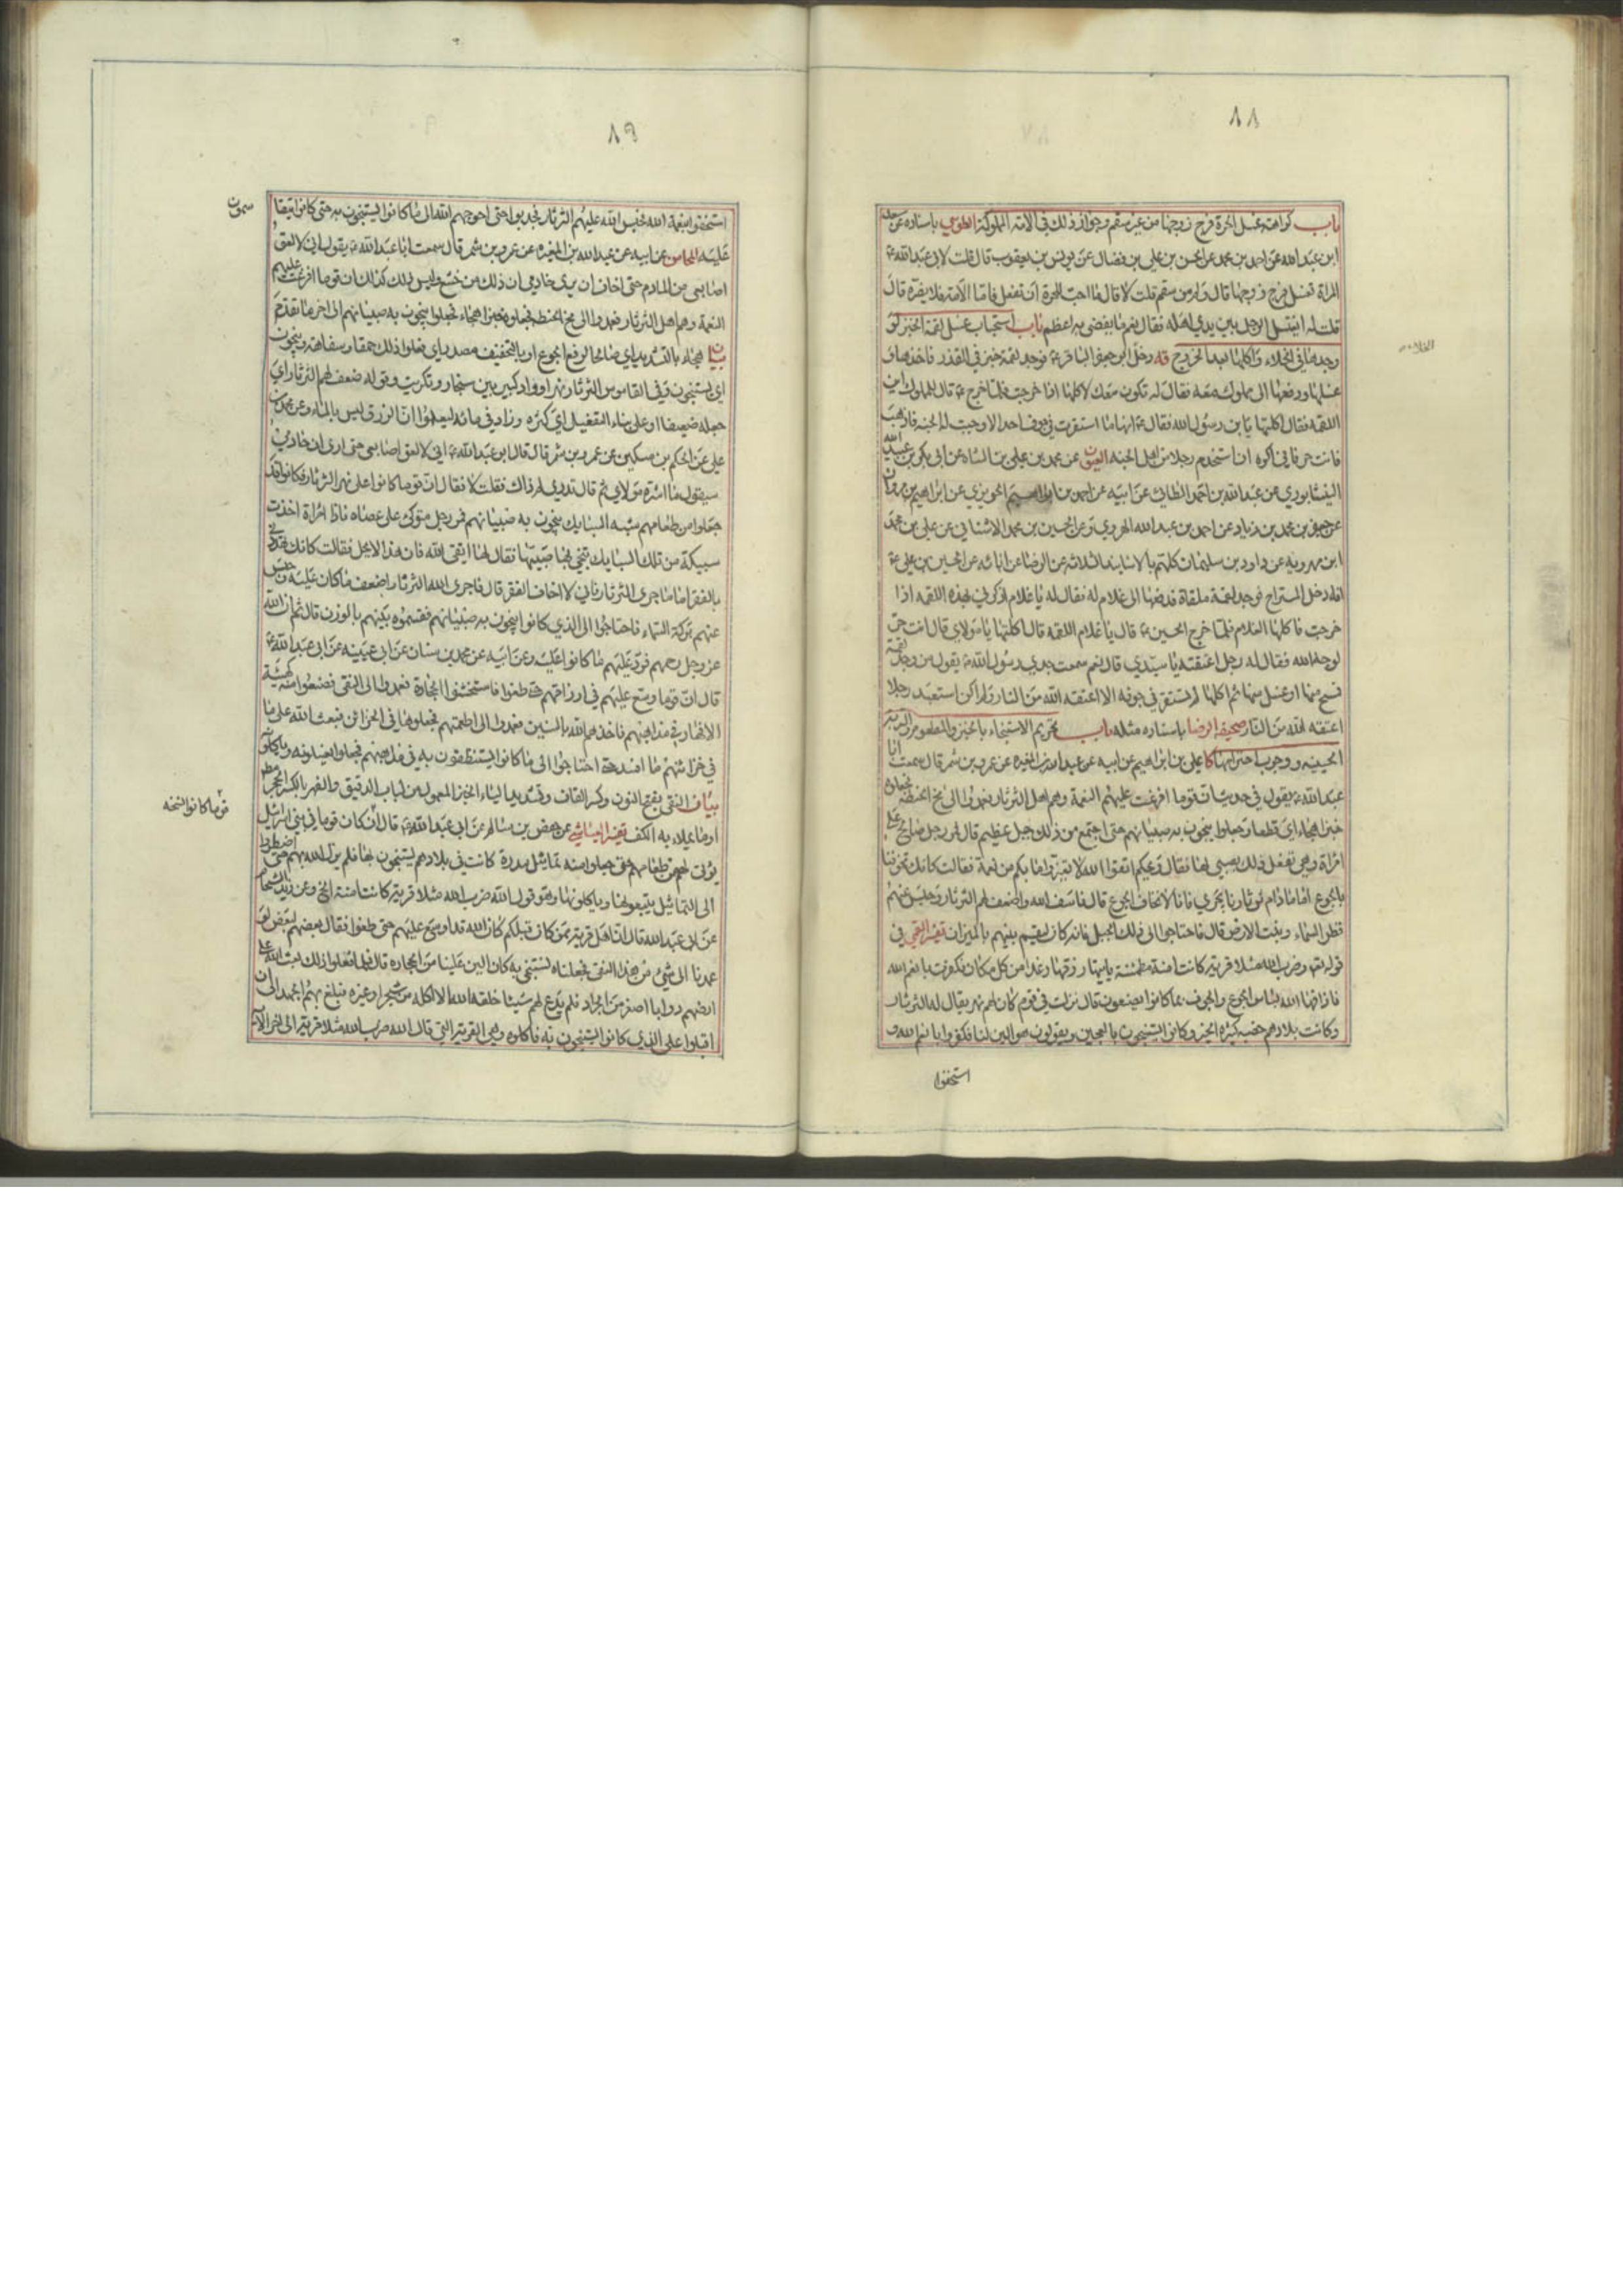 ٨٨
باب كراهة غسل الحرة فرج زوجها من غير سقم وجواز ذلك في الامة المملوكة الطوسي باسناده عن
ابن عبد الله عن احمد بن محمد عن الحسن بن علي بن فضال عن يونس بن يعقوب قال قلت لابي عبد الله ع
المراة تغسل فرج زوجها قال ولم من سقم قلت لا قال ما احب للحرة ان تفعل فاما الامة فلا يضره قال
قلت له ايغتسل الرجل بين يدي اهله فقال نعم ما يفضي به اعظم باب استحباب غسل لقمة الخبز لو
وجدها في الخلاء واكلها بعد الخروج قه دخل ابو جعفر الباقر ع فوجد لقمة خبز في القذر فاخذها و
غسلها ودفعها الى مملوك معه فقال له تكون معك لاكلها اذا خرجت فلما خرج ع قال للمملوك اين
اللقمة فقال اكلتها يا بن رسول الله فقال ع انها ما استقرت في جوف احد الا وجبت له الجنة فاذهب
فانت حر فاني اكره ان استخدم رجلا من اهل الجنة العيون عن محمد بن علي بن الشاه عن ابي بكر بن عبد الله
النيشابوري عن عبد الله بن احمد الطائي عن ابيه عن احمد بن ابراهيم الخوزي عن ابراهيم بن مروان
عن جعفر بن محمد بن زياد وعن احمد بن عبد الله الهروي وعن الحسين بن محمد الاشناني عن علي بن محمد
ابن مهرويه عن داود بن سليمان كلهم بالاسانيد الثلاثة عن الرضا عن ابائه عن الحسين بن علي ع
انه دخل المستراح فوجد لقمة ملقاة فدفعها الى غلام له فقال له يا غلام اذكرني بهذه اللقمة اذا
خرجت فاكلها الغلام فلما خرج الحسين ع قال يا غلام اللقمة قال اكلتها يا مولاي قال انت حر
لوجه الله فقال له رجل اعتقته يا سيدي قال نعم سمعت جدي رسول الله ص يقول من وجد لقمة
فمسح منها او غسل منها ثم اكلها لم تستقر في جوفه الا اعتقه الله من النار ولم اكن استعبد رجلا
اعتقه الله من النار صحيفة الرضا باسناده مثله باب تحريم الاستنجاء بالخبز والمطعوم والتربة
الحسينيه ووجوب احترامها كا علي بن ابراهيم عن ابيه عن عبد الله بن المغيرة عن عمرو بن شمر قال سمعت ابا
عبد الله ع يقول في حديث ان قوما افرغت عليهم النعمة وهم اهل الثرثار فعمدوا الى مخ الحنطة فجعلوه
خبزا هجاء اي قطعا وجعلوا ينجون به صبيانهم حتى اجتمع من ذلك جبل عظيم قال فمر رجل صالح على
امراة وهي تفعل ذلك بصبي لها فقال ويحكم اتقوا الله لا يغير ما بكم من نعمة فقالت كانك تخوفنا
بالجوع اما ما دام ثرثارنا يجري فانا لا نخاف الجوع قال فاسف الله واضعف لهم الثرثار وحبس عنهم
قطر السماء ونبت الارض قال فاحتاجوا الى ذلك الجبل فانه كان ليقسم بينهم بالميزان تفسير القمي في
قوله تعالى وضرب الله مثلا قرية كانت امنة مطمئنة ياتيها رزقها رغدا من كل مكان فكفرت بانعم الله
فاذاقها الله لباس الجوع والخوف بما كانوا يصنعون قال نزلت في قوم كان لهم نهر يقال له الثرثار
وكانت بلادهم خصبة كثيرة الخير وكانوا يستنجون بالعجين ويقولون هو الين لنا فكفروا بانعم الله و
استخفوا
٨٩
استخفوا بنعمة الله فحبس الله عليهم الثرثار فجدبوا حتى احوجهم الله الى ما كانوا يستنجون به حتى كانوا يتقا
سمون
عليه المحاسن عن ابيه عن عبد الله بن المغيرة عن عمرو بن شمر قال سمعت ابا عبد الله ع يقول اني لالعق
اصابعي من المادم حتى اخاف ان يرى خادمي ان ذلك من جشع وليس ذلك كذلك ان قوما افرغت عليهم
النعمة وهم اهل الثرثار فعمدوا الى مخ الحنطة فجعلوه خبزا هجاء فجعلوا ينجون به صبيانهم الى اخر ما تقدم
بيان هجاء بالتشديد اي صالحا لرفع الجوع او بالتخفيف مصدر اي فعلوا ذلك حمقا وسفاهة وينجون
اي يستنجون وفي القاموس الثرثار نهر او واد كبير بين سنجار وتكريت وقوله ضعف لهم الثرثار اي
جعله ضعيفا او على بناء التفعيل اي كثره وزاد في مائه ليعلموا ان الرزق ليس بالماء وعن محمد بن
علي عن الحكم بن مسكين عن عمرو بن شمر قال قال ابو عبد الله ع اني لالعق اصابعي حتى ارى ان خادمي
سيقول ما اشره مولاي ثم قال تدري لم ذاك فقلت لا فقال ان قوما كانوا على نهر الثرثار فكانوا قد
جعلوا من طعامهم شبه السبايك ينجون به صبيانهم فمر رجل متوكئ على عصاه فاذا امراة اخذت
سبيكة من تلك السبايك تنجي بها صبيها فقال لها اتقي الله فان هذا لا يحل فقالت كانك تهددني
بالفقر اما ما جرى الثرثار فاني لا اخاف الفقر قال فاجرى الله الثرثار اضعف ما كان عليه وحبس
عنهم بركة السماء فاحتاجوا الى الذي كانوا ينجون به صبيانهم فقسموه بينهم بالوزن قال ثم ان الله
عز وجل رحمهم فرد عليهم ما كانوا عليه وعن ابيه عن محمد بن سنان عن ابي عيينه عن ابي عبد الله ع
قال ان قوما وسع عليهم في ارزاقهم حتى طغوا فاستخشنوا الحجارة فعمدوا الى النقي فصنعوا منه كهيئة
الافهار في مذاهبهم فاخذهم الله بالسنين فعمدوا الى اطعمتهم فجعلوها في الخزائن فبعث الله على ما
في خزائنهم ما افسده حتى احتاجوا الى ما كانوا يستنظفون به في مذاهبهم فجعلوا يغسلونه وياكلونه
بيان النقي بفتح النون وكسر القاف وتشديد الياء الخبز المعمول من لباب الدقيق والفهر بالكسر الحجر
او ما يملاء به الكف تفسير العياشي عن حفص بن سالم عن ابي عبد الله ع قال ان كان قوما في بني اسرائيل
قوما كانوا نسخه
يؤتى لهم من طعامهم حتى جعلوا منه تماثيل بمدرة كانت في بلادهم يستنجون بها فلم يزل الله بهم حتى اضطروا
الى التماثيل يتبعونها وياكلونها وهو قول الله ضرب الله مثلا قرية كانت امنة الخ وعن زيد الشحام
عن ابي عبد الله قال ان اهل قرية ممن كان قبلكم كان الله قد اوسع عليهم حتى طغوا فقال بعضهم لبعض لو
عمدنا الى شيء من هذا النقي فجعلناه نستنجي به كان الين علينا من الحجارة قال فلما فعلوا ذلك بعث الله على
ارضهم دوابا اصغر من الجراد فلم يدع لهم شيئا خلقه الله الا اكله من شجر او غيره فبلغ بهم الجهد الى ان
اقبلوا على الذي كانوا يستنجون به فاكلوه وهي القرية التي قال الله ضرب الله مثلا قرية الى اخر الاية